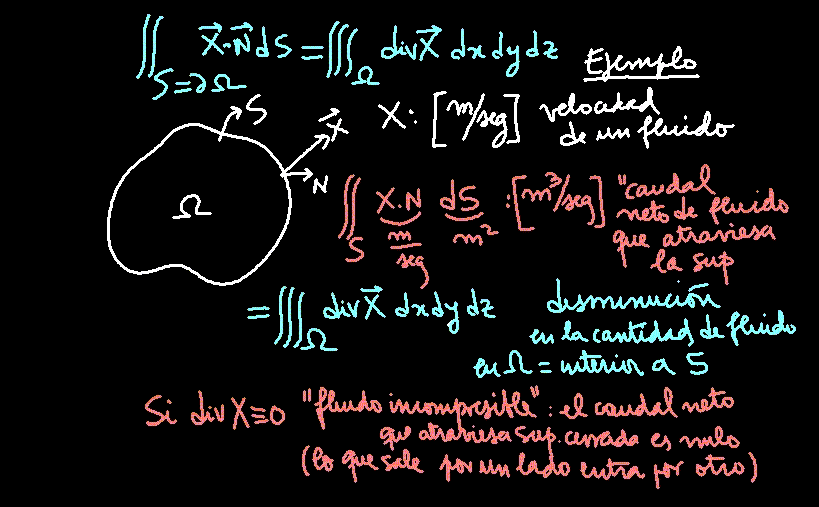 ∬_{S=∂Ω} X⃗·N⃗ dS = ∭_Ω div X⃗ dx dy dz
Ejemplo
S
X⃗
N
Ω
X: [m/seg] velocidad
de un fluido
∬_S X·N dS : [m³/seg] "caudal
m/seg m² neto de fluido
que atraviesa
la sup
= ∭_Ω div X⃗ dx dy dz disminución
en la cantidad de fluido
en Ω = interior a S
Si div X ≡ 0 "fluido incompresible": el caudal neto
que atraviesa sup. cerrada es nulo
(lo que sale por un lado entra por otro)